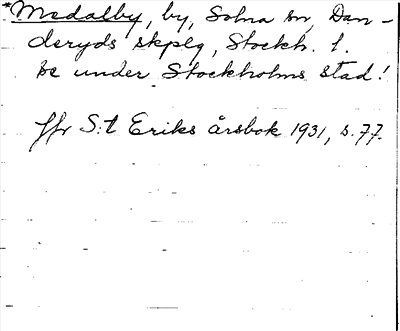 *Medalby, by, Solna sn, Dan-
deryds skplg, Stockh. l.
Se under Stockholms stad!
Jfr S:t Eriks årsbok 1931, s. 77.